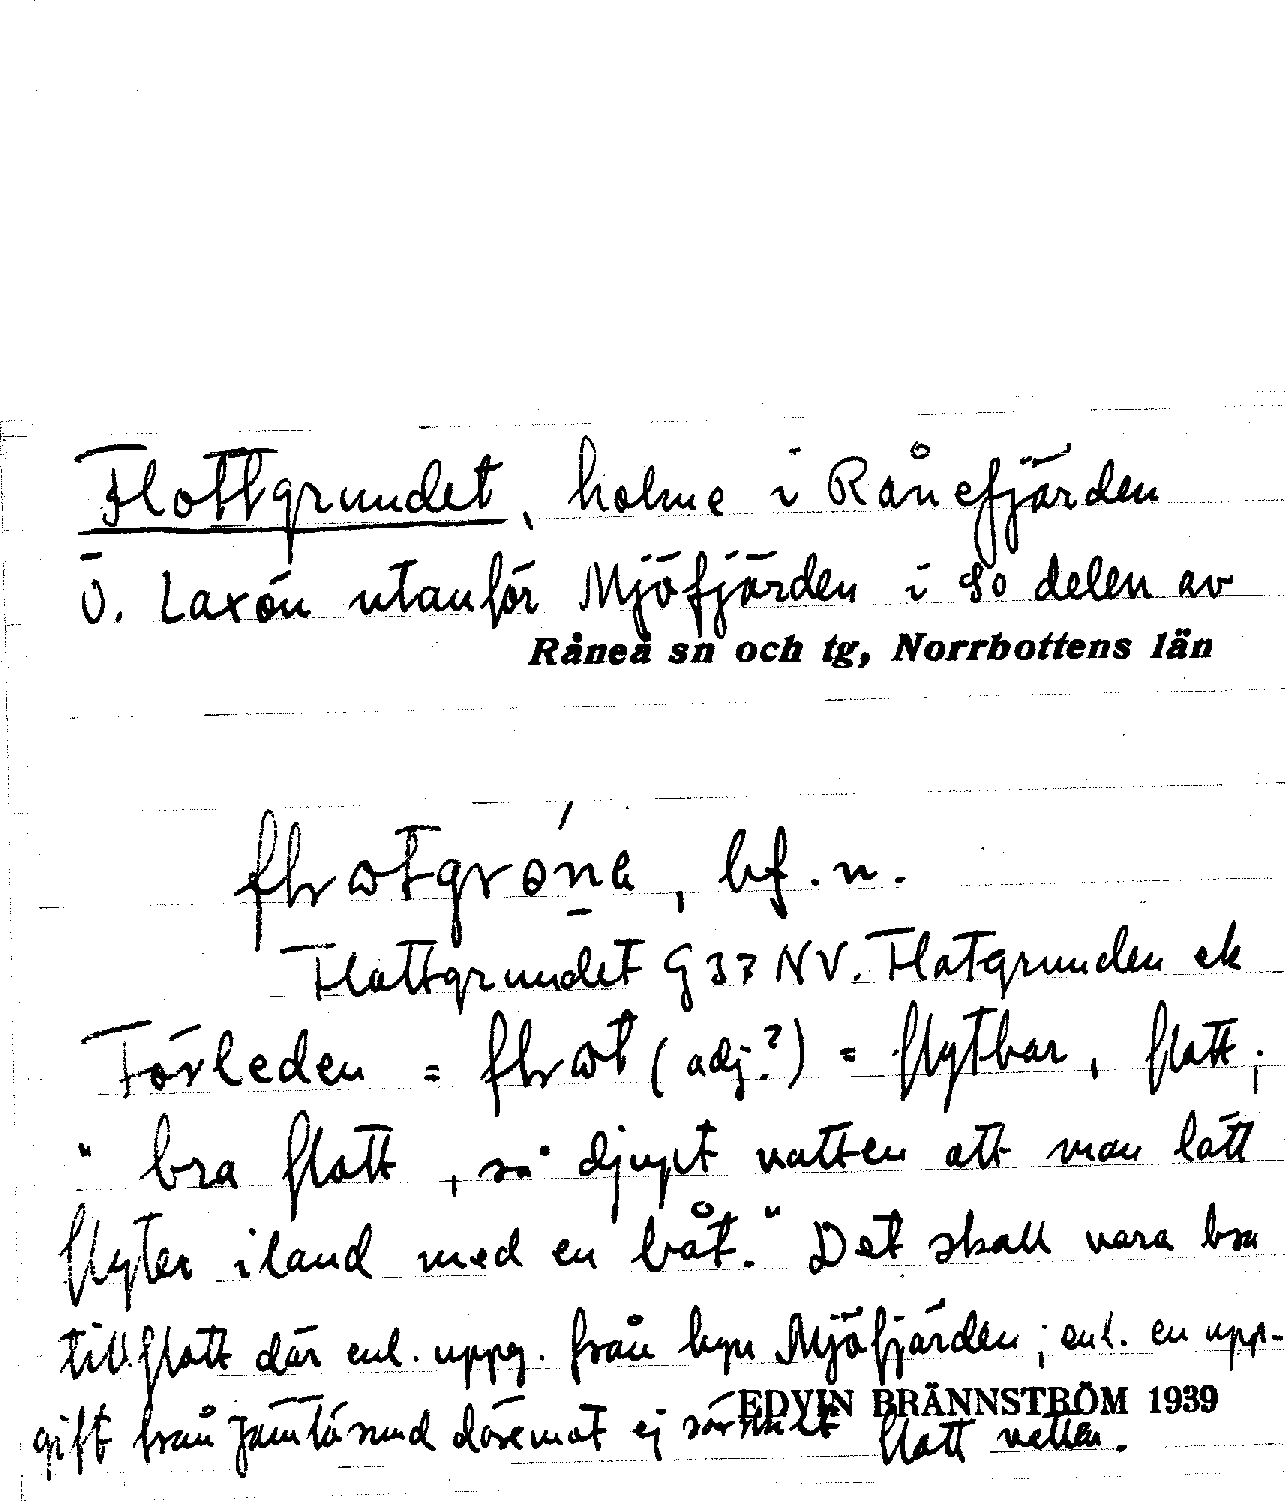 Flottgrundet, holme i Rånefjärden
Ö. Laxön utanför Mjöfjärden i So delen av
Råneå sn och tg, Norrbottens län
bf. n.
Flottgrundet G 37 NV. Flotgrunden ek
Förleden = (adj?) = flytbar, flott;
"bra flott, så djupt vatten att man lätt
flyter iland med en båt." Det skall vara bra
tillflott där enl. uppg. från byn Mjöfjärden; enl. en upp-
EDVIN BRÄNNSTRÖM 1939
gift från Jämtösund däremot ej särskilt flott vatten.